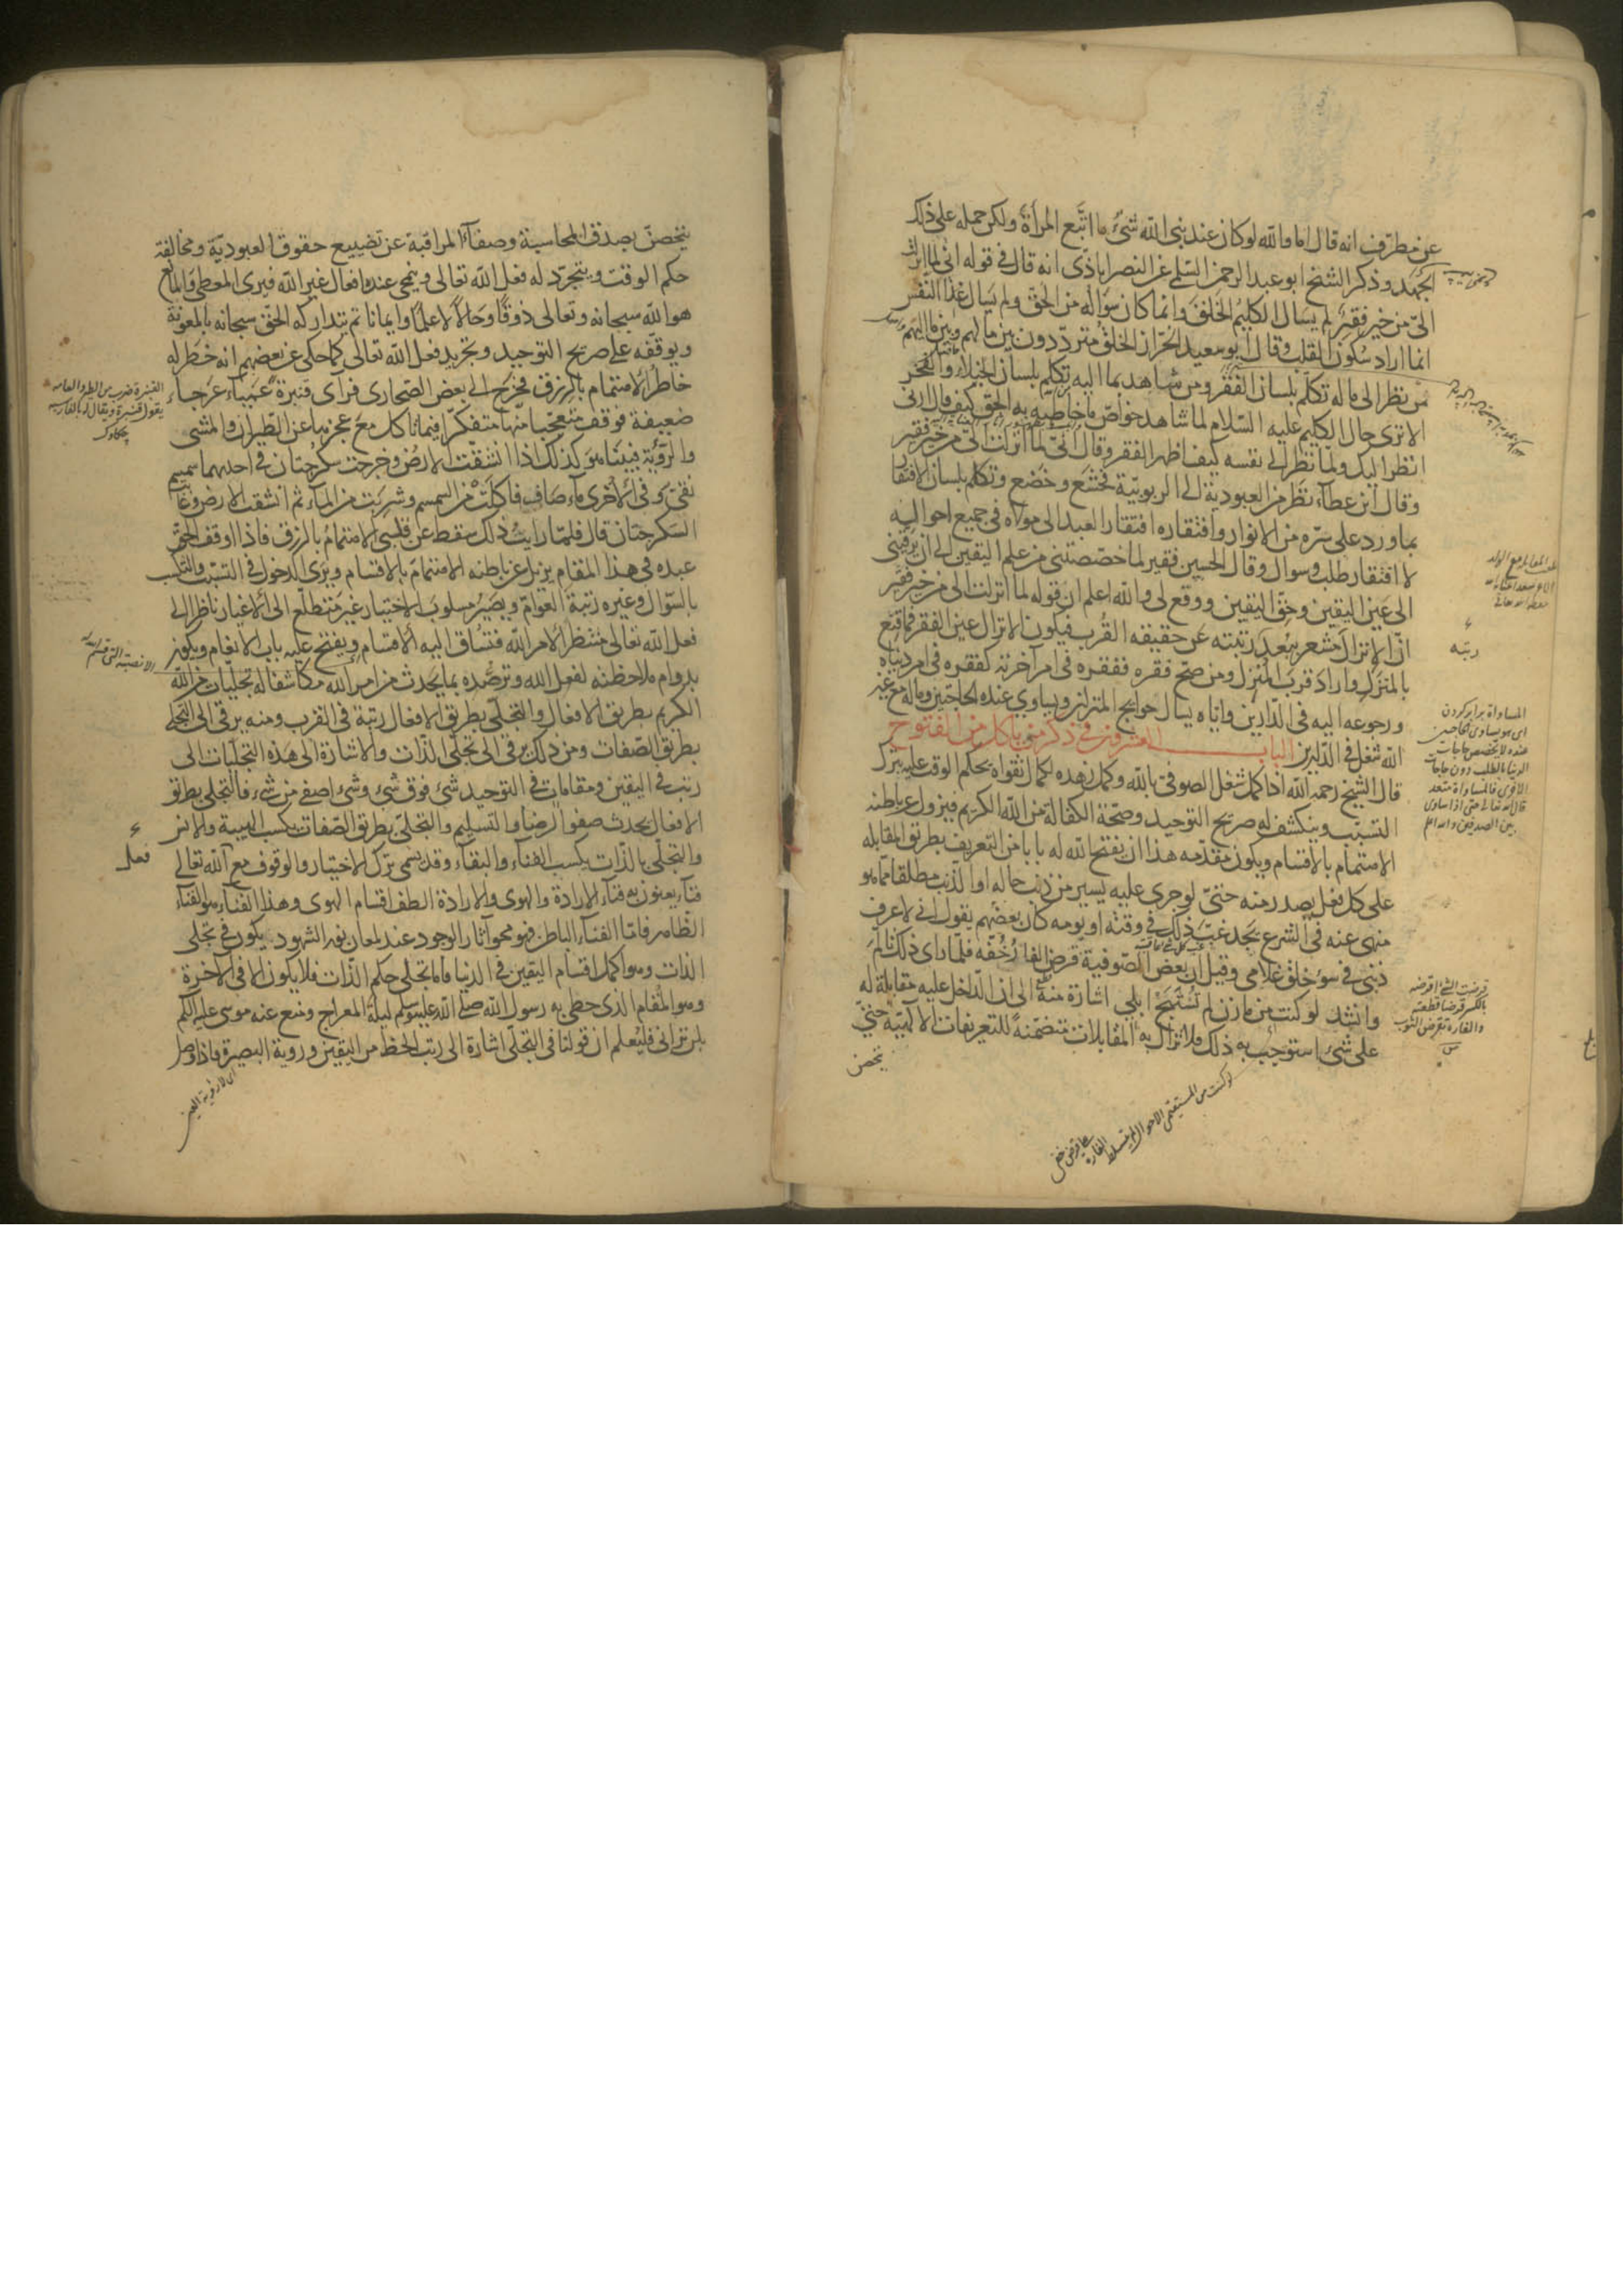 عن مطرّف انه قال اما والله لو كان عند نبي الله شئ ما اتبع المرأة ولكن حمله على ذلك
الجهد وذكر الشيخ ابو عبد الرحمن السلمي عن النصراباذى انه قال فى قوله انى لما انزلت
الىّ من خير فقير لم يسأل الكليم الخلق وانما كان سؤاله من الحق ولم يسأل غذا النفس
انما اراد سكون القلب وقال ابو سعيد الخراز الخلق مترددون بين ما لهم وبين ما اليهم
من نظر الى ما له تكلم بلسان الفقر ومن شاهد ما اليه تكلم بلسان الخيلاء والفخر
الا ترى حال الكليم عليه السلام لما شاهد خواص ما خاطبه به الحق كيف قال ارنى
انظر اليك ولما نظر الى نفسه كيف اظهر الفقر وقال انى لما انزلت الىّ من خير فقير
وقال ابن عطاء نظر من العبودية الى الربوبية فخشع وخضع وتكلم بلسان الافتقار
بما ورد على سره من الانوار وافتقاره افتقار العبد الى مولاه فى جميع احواله
لا افتقار طلب وسوال وقال الحسين فقير لما خصصتنى من علم اليقين الى ان ترقينى
الى عين اليقين وحق اليقين ووقع لى والله اعلم ان قوله لما انزلت الى من خير فقير
ان الانزال مشعر ببعد رتبته عن حقيقه القرب فيكون الانزال عين الفقر فما قنع
بالمنزل واراد قرب المنزل ومن صح فقره ففقره فى امر آخرته كفقره فى امر دنياه
ورجوعه اليه فى الدارين واياه يسال حوايج المنزلين ويساوى عنده الحاجتين وماله مع غير
الله شغل فى الدارين الباب العشرون فى ذكر من ياكل من الفتوح
قال الشيخ رحمه الله اذا كمل شغل الصوفى بالله وكمل زهده لكمال تقواه يحكم الوقت عليه بترك
التسبب وينكشف له صريح التوحيد وصحة الكفالة من الله الكريم فيزول عن باطنه
الاهتمام بالاقسام ويكون مقدمه هذا ان يفتح الله له بابا من التعريف بطريق المقابله
على كل فعل يصدر منه حتى لو جرى عليه يسير من ذنب حاله او الذنب مطلقا مما هو
منهى عنه فى الشرع يجد غبّ ذلك فى وقته او يومه كان بعضهم يقول انى لاعرف
ذنبى فى سوء خلق غلامى وقيل ان بعض الصوفية قرض الفار خفه فلما راى ذلك تالم
وانشد لو كنت من مازن لم تستبح ابلى اشارة منه الى ان الداخل عليه مقابلة له
على شئ استوجب به ذلك فلا تزال به المقابلات متضمنة للتعريفات الالهية حتى
يتحصن
رتبه
المساواة برابر كردن
اى هو يساوى الحاجتين
عنده لا يخصص حاجات
الدنيا بالطلب دون حاجات
الاخرى فالمساواة متعد
قال الله تعالى حتى اذا ساوى
بين الصدفين والله اعلم
قرضت الشئ اقرضه
بالكسر قرضا قطعته
والفارة تقرض الثوب
يتحصن بصدق المحاسبة وصفاء المراقبة عن تضييع حقوق العبودية ومخالفة
حكم الوقت ويتجرد له فعل الله تعالى وينمحى عنده افعال غير الله فيرى المعطى والمانع
هو الله سبحانه وتعالى ذوقا وحالا لا علما وايمانا ثم يتداركه الحق سبحانه بالمعونة
ويوقفه على صريح التوحيد وتجريد فعل الله تعالى كما حكى عن بعضهم انه خطر له
خاطر الاهتمام بالرزق فخرج الى بعض الصحارى فراى قنبرة عمياء عرجاء
ضعيفة فوقف متعجبا منها متفكرا فيما تاكل مع عجزها عن الطيران والمشى
والرؤية فبينا هو كذلك اذا انشقت الارض وخرجت سكرجتان فى احديهما سمسم
نقى وفى الاخرى ماء صاف فاكلت من السمسم وشربت من الماء ثم انشقت الارض وغابت
السكرجتان قال فلما رايت ذلك سقط عن قلبى الاهتمام بالرزق فاذا اوقف الحق
عبده فى هذا المقام يزيل عن باطنه الاهتمام بالاقسام ويرى الدخول فى التسبب والتكسب
بالسوال وغيره رتبة العوام ويصير مسلوب الاختيار غير متطلع الى الاغيار ناظرا الى
فعل الله تعالى منتظرا لامر الله فتساق اليه الاقسام ويفتح عليه باب الانعام ويكون
بدوام ملاحظته لفعل الله وترصده بما يحدث من امر الله مكاشفا له تجليات من الله
الكريم بطريق الافعال والتجلى بطريق الافعال رتبة فى القرب ومنه يرقى الى التجلى
بطريق الصفات ومن ذلك يرقى الى تجلى الذات والاشارة الى هذه التجليات الى
رتب فى اليقين ومقامات فى التوحيد شئ فوق شئ وشئ اصفى من شئ فالتجلى بطريق
الافعال يحدث صفو الرضا والتسليم والتجلى بطريق الصفات يكسب الهيبة والانس
والتجلى بالذات يكسب الفناء والبقاء وقد يسمى ترك الاختيار والوقوف مع الله تعالى
فناء يعنون به فناء الارادة والهوى والارادة الطف اقسام الهوى وهذا الفناء هو الفناء
الظاهر فاما الفناء الباطن فهو محو آثار الوجود عند لمعان نور الشهود يكون فى تجلى
الذات وهو اكمل اقسام اليقين فى الدنيا فاما تجلى حكم الذات فلا يكون الا فى الاخرة
وهو المقام الذى حظى به رسول الله صلى الله عليه وسلم ليلة المعراج ومنع عنه موسى عليه السلم
بلن ترانى فليعلم ان قولنا فى التجلى اشارة الى رتب الحظ من اليقين ورؤية البصيرة فاذا وصل
القنبرة ضرب من الطير والعامه
يقول قنبرة ويقال له بالفارسيه
چكاوك
فعل